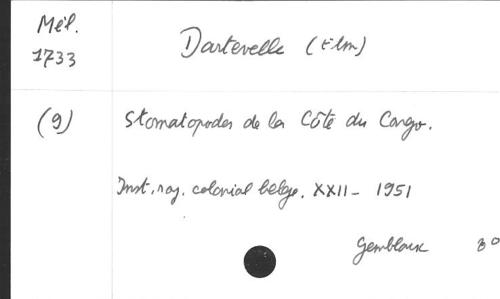 Mél.
1733
Dartevelle (Elm)
(9)
Stomatopodes de la Côte du Congo.
Inst. roy. colonial belge. XXII - 1951
Gembloux 8°